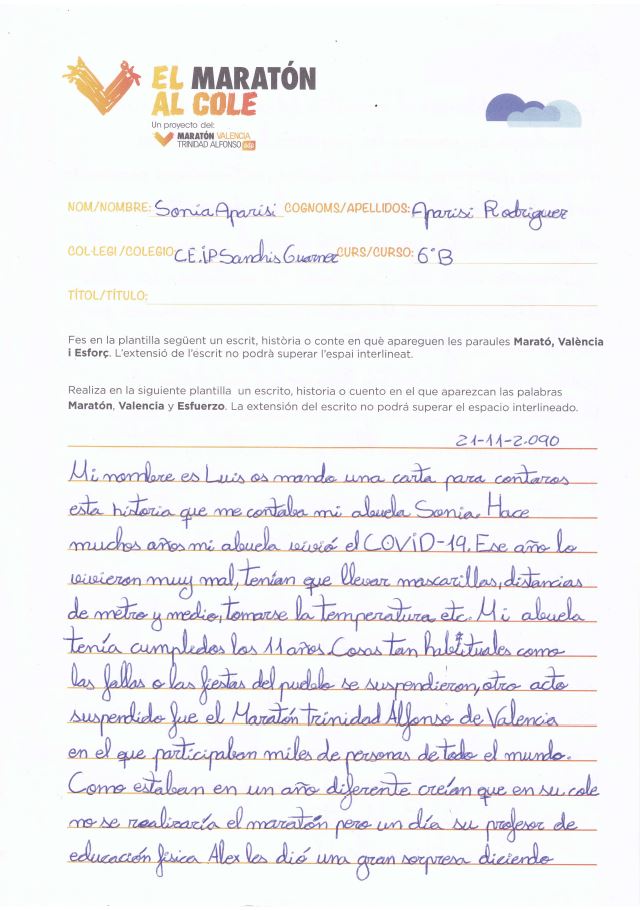 EL MARATÓN
AL COLE
Un proyecto del:
MARATÓN VALENCIA
TRINIDAD ALFONSO EDP
NOM/NOMBRE: Sonia Aparisi COGNOMS/APELLIDOS: Aparisi Rodriguez
COL·LEGI/COLEGIO C.E.iP Sanchis Guarner CURS/CURSO: 6°B
TÍTOL/TÍTULO:
Fes en la plantilla següent un escrit, història o conte en què apareguen les paraules Marató, València
i Esforç. L'extensió de l'escrit no podrà superar l'espai interlineat.
Realiza en la siguiente plantilla un escrito, historia o cuento en el que aparezcan las palabras
Maratón, Valencia y Esfuerzo. La extensión del escrito no podrá superar el espacio interlineado.
21-11-2.090
Mi nombre es Luis os mando una carta para contaros
esta historia que me contaba mi abuela Sonia. Hace
muchos años mi abuela vivió el COViD-19. Ese año lo
vivieron muy mal, tenían que llevar mascarillas, distancias
de metro y medio, tomarse la temperatura etc. Mi abuela
tenía cumpledos los 11 años. Cosas tan habituales como
las fallas o las fiestas del pueblo se suspendieron, otro acto
suspendido fue el Maratón trinidad Alfonso de Valencia
en el que participaban miles de personas de todo el mundo.
Como estaban en un año diferente creían que en su cole
no se realizaría el maratón pero un día su profesor de
educación física Alex les dió una gran sorpresa diciendo